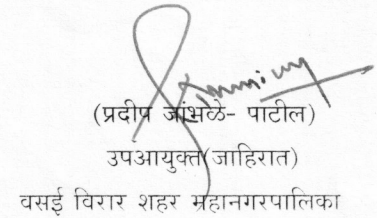 (प्रदीप जांभळे- पाटील)
उपआयुक्त(जाहिरात)
वसई विरार शहर महानगरपालिका